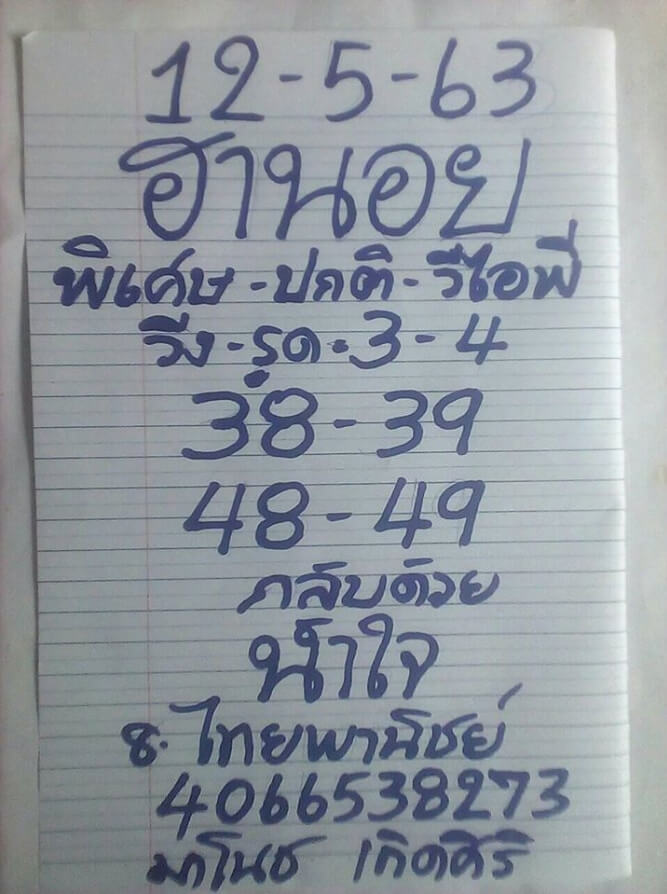 12-5-63
ฮานอย
พิเศษ-ปกติ-วีไอพี
วิ่ง-รูด.3-4
38-39
48-49
กลับด้วย
น้ำใจ
ธ.ไทยพานิชย์
4066538273
มาโนช เกิดศิริ